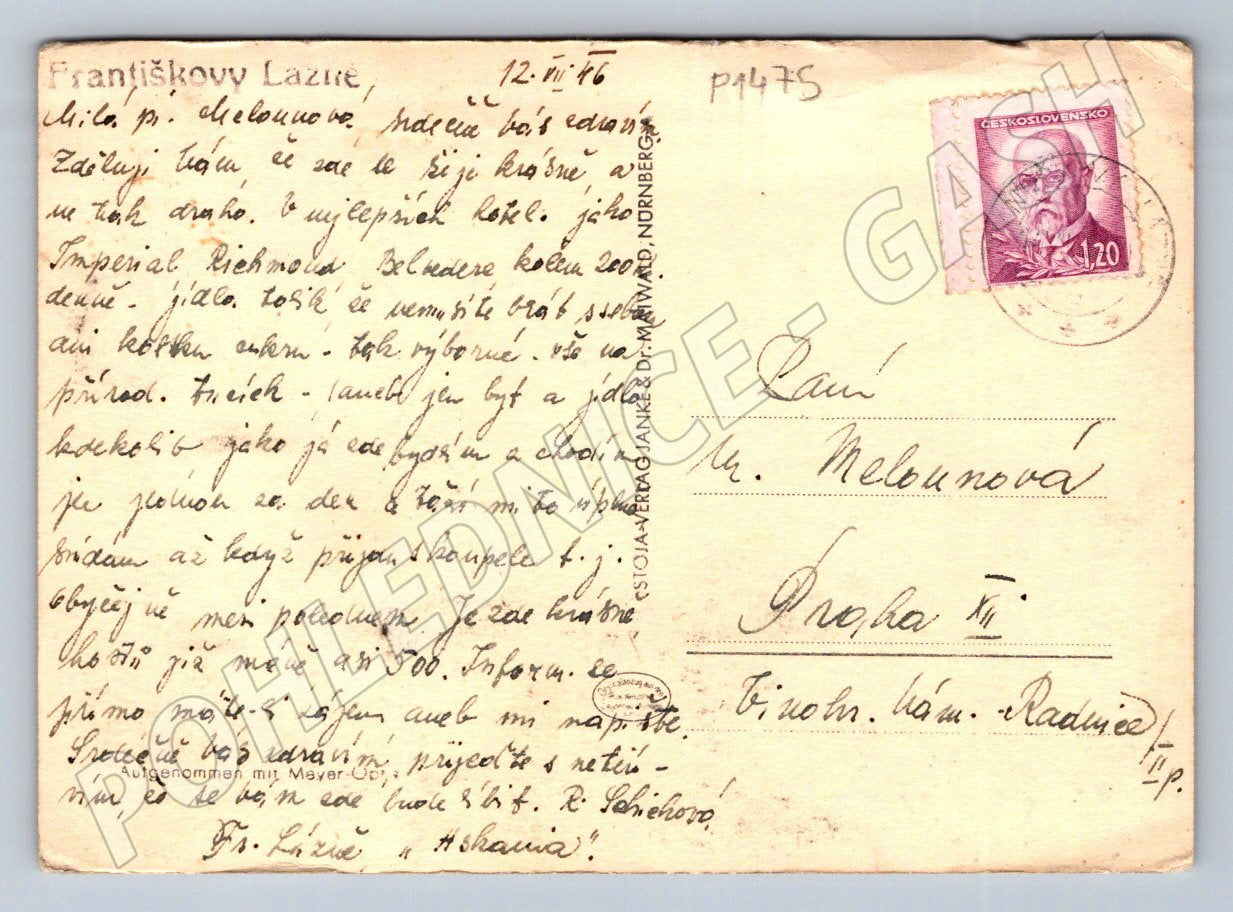 Františkovy Lázně
12. VII 46
P1475
Milá pí. Melounová, srdečně vás zdravím
Zděluji vám že zde se žije krásně a
ne tak draho. V nejlepších hotel. jako
Imperial Richmond Belvedere kolem 200
denně - jídlo tolik že nemusíte brát s sebou
ani kostku cukru - tak výborné. vše na
přírod. - aneb jen byt a jídlo
kdekoliv jako já zde bydlím a chodím
jen jednou za den a to úplně
snídám až když přijdu s koupele t. j.
obyčejně mezi polednem. Je zde krásně
hostů již máme asi 500. Inform. se
přímo máte-li zájem aneb mi napište.
Srdečně vás zdravím přijeďte s
že se vám zde bude líbit. R.
Fr. Lázně „Askania".
Aufgenommen mit Meyer-Optik
STOJA-VERLAG JANKE & Dr. MAIWALD, NÜRNBERG
ČESKOSLOVENSKO
1,20
Paní
M. Melounová
Praha XII
Vinohr. nám. - Radnice/
II p.
POHLEDNICE - GASH